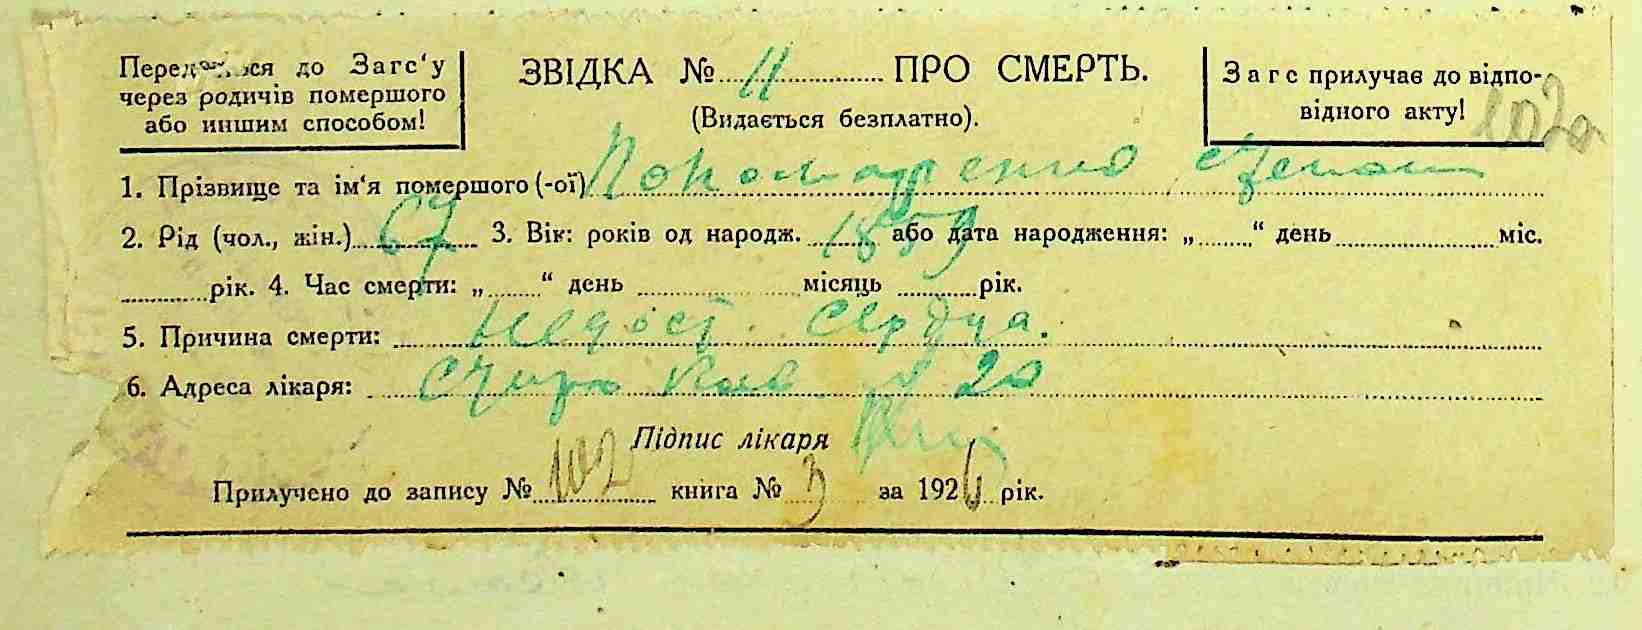 Передається до Загс'у
через родичів помершого
або иншим способом!
ЗВІДКА № 11 ПРО СМЕРТЬ.
(Видається безплатно).
Загс прилучає до відповідного акту!
102
1. Прізвище та ім'я помершого (-ої) Пономаренко Степан
2. Рід (чол., жін.) 3. Вік: років од народж. 1859 або дата народження: „ “ день міс.
рік. 4. Час смерти: „ “ день місяць рік.
5. Причина смерти: Недост. сердца.
6. Адреса лікаря: 20
Підпис лікаря
Прилучено до запису № 102 книга № 3 за 1926 рік.